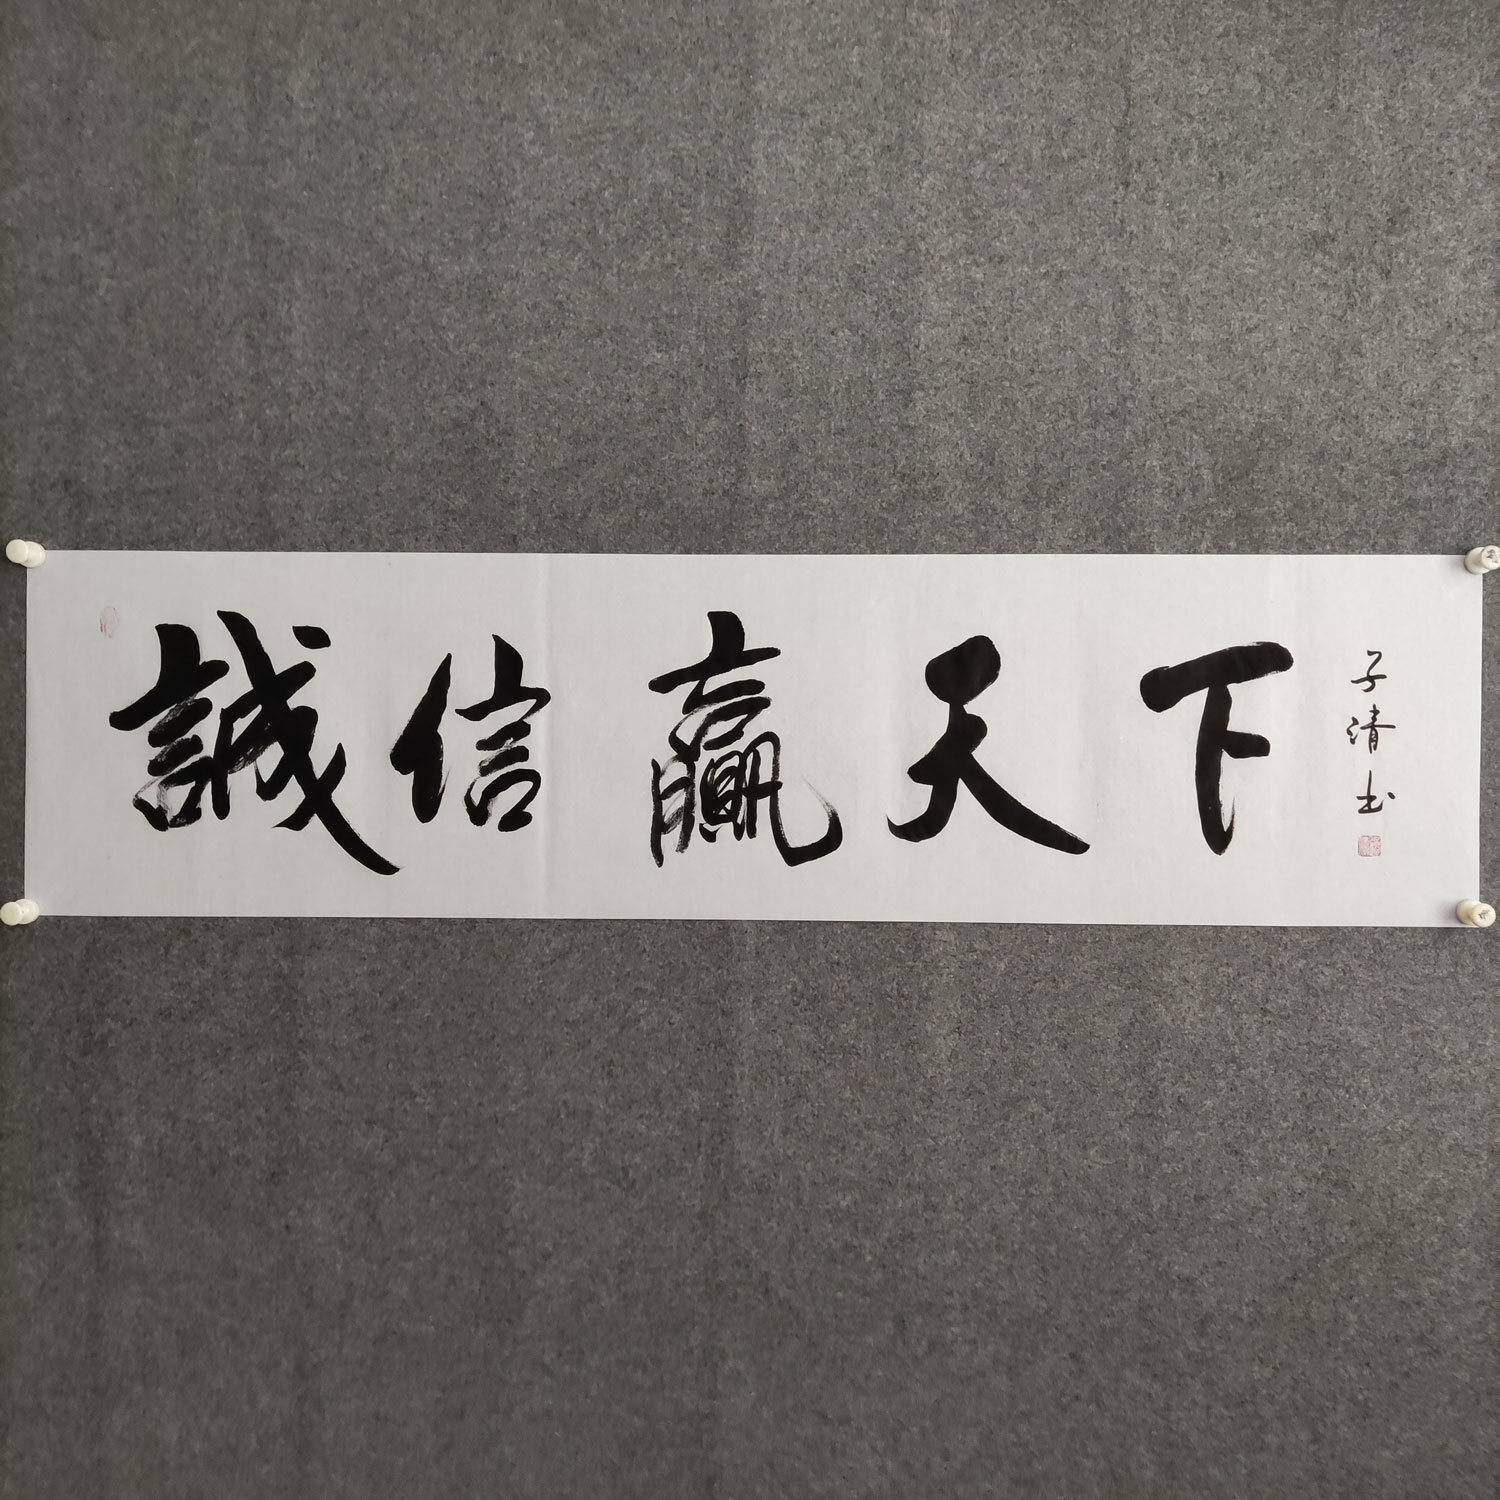 誠信贏天下
子清书